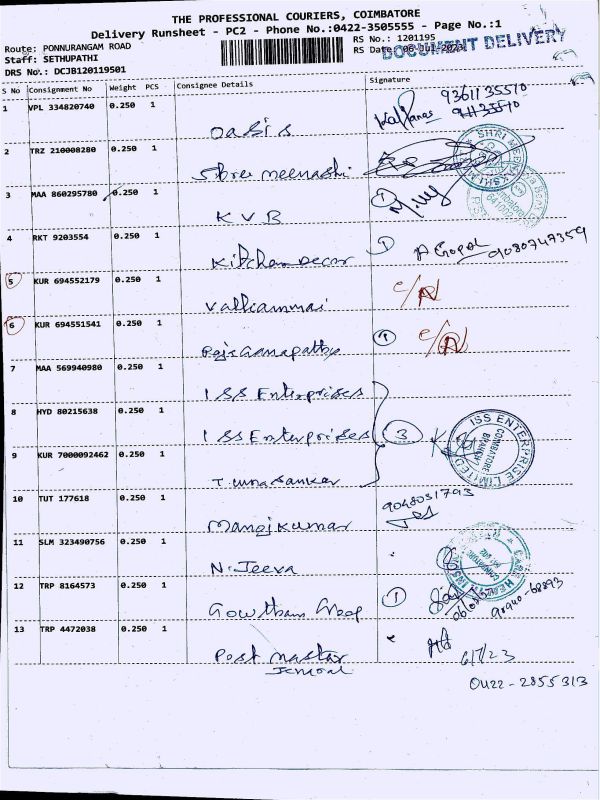 THE PROFESSIONAL COURIERS, COIMBATORE
Delivery Runsheet - PC2 - Phone No.:0422-3505555 - Page No.:1
Route: PONNURANGAM ROAD RS No.: 1201195
Staff: SETHUPATHI RS Date: 06-Jul-2023
DOCUMENT DELIVERY
DRS No.: DCJB120119501
S No Consignment No Weight PCS Consignee Details Signature
1 VPL 334820740 0.250 1 Oasis Kalpana 9361135510
2 TRZ 210008280 0.250 1 Shree meenashi
3 MAA 860295780 0.250 1 KVB 1
4 RKT 9203554 0.250 1 Kitchen Decor 1 A Gopal 9080747359
5 KUR 694552179 0.250 1 Valliammai
6 KUR 694551541 0.250 1 Rajaganapathy
7 MAA 569940980 0.250 1 ISS Enterprises
8 HYD 80215638 0.250 1 ISS Enterprises 3
ISS ENTERPRISE LIMITED
COIMBATORE BRANCH
9 KUR 7000092462 0.250 1 T. Umasankar
10 TUT 177618 0.250 1 Manojkumar 9048031793
11 SLM 323490756 0.250 1 N. Jeeva
12 TRP 8164573 0.250 1 Gowtham 1 98940-68893
13 TRP 4472038 0.250 1 Post Master
6/7/23
0422-2855313